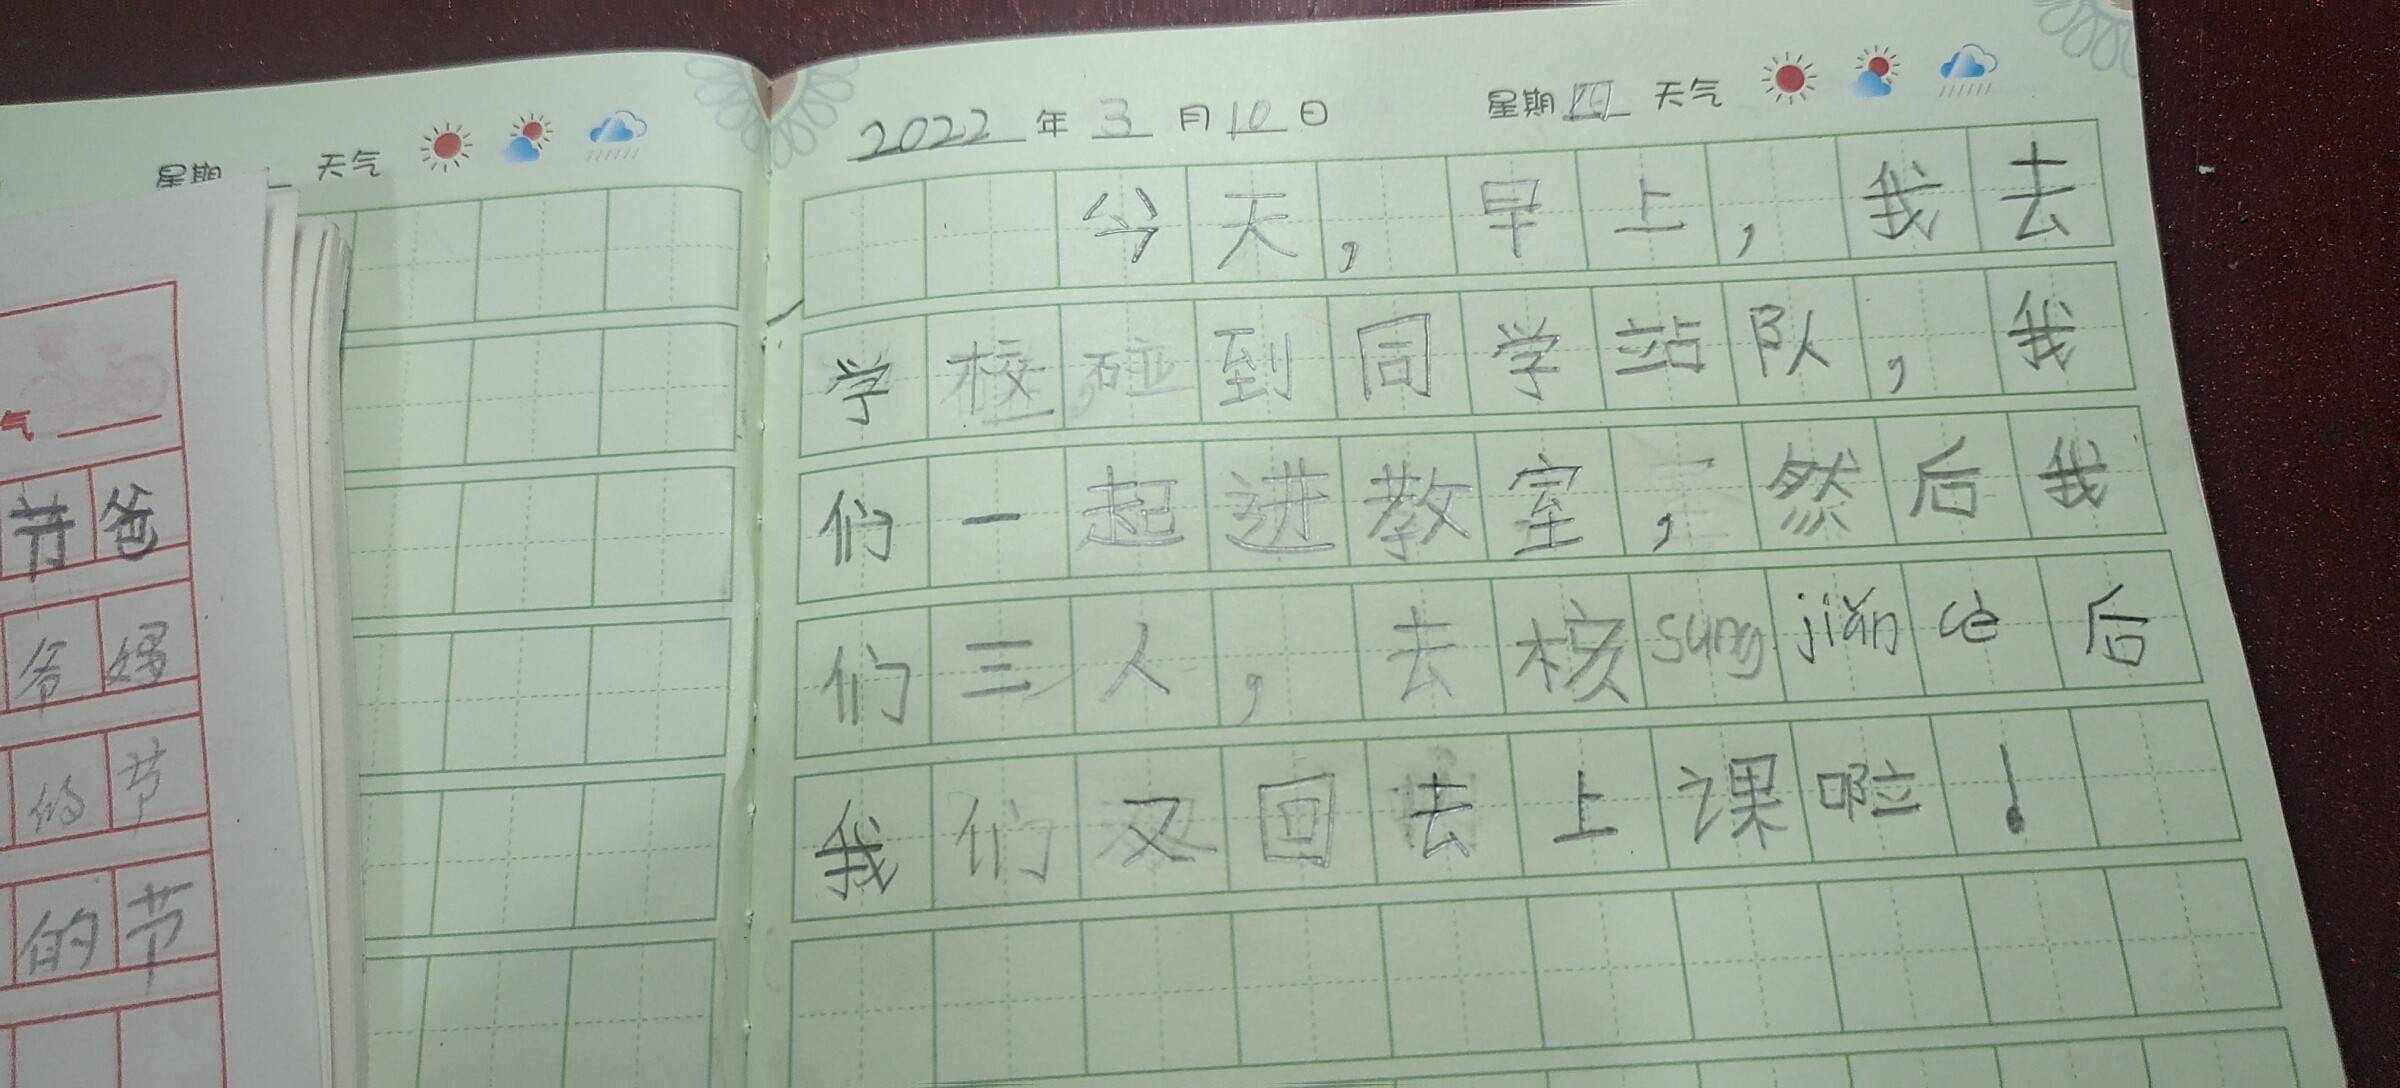 星期 天气
气
节爸
爷妈
的节
的节
2022年3月10日 星期四 天气
今天，早上，我去
学校，碰到同学站队，我
们一起进教室，然后我
们三人，去核sung jiǎn cè后
我们又回去上课啦！